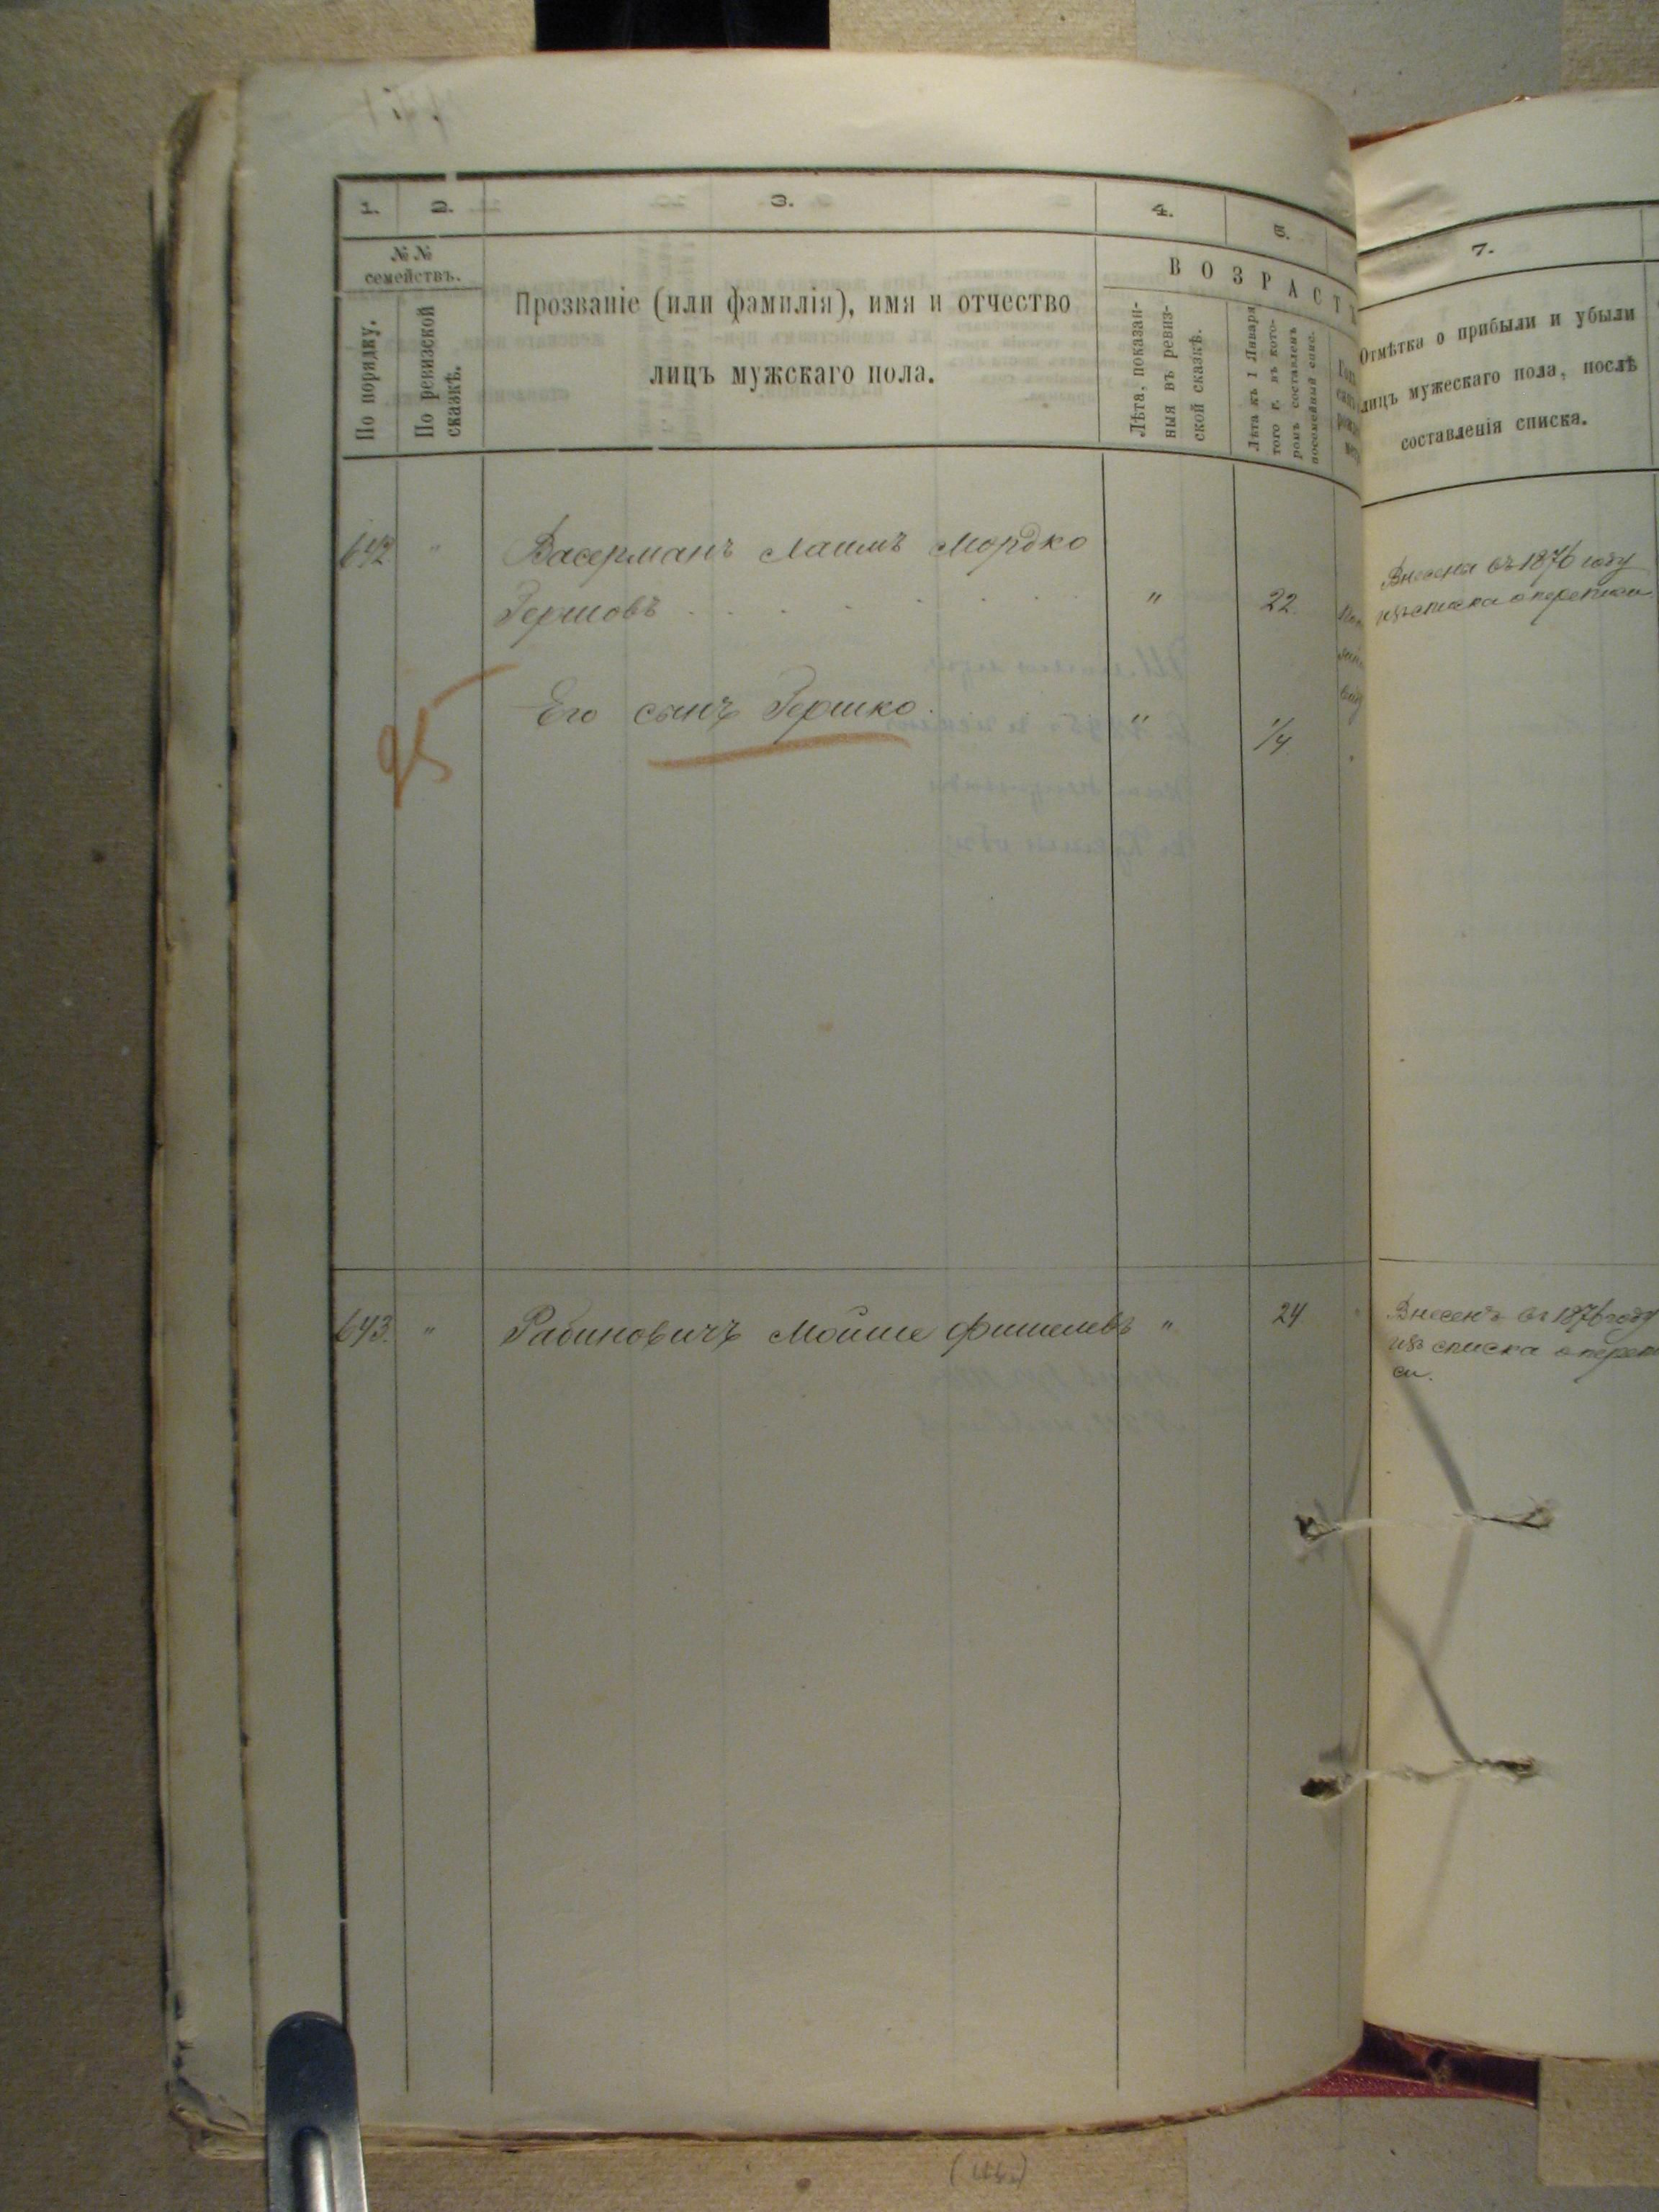 1.
2.
3.
4.
5.
7.
№№
семействъ.
По порядку.
По ревизской
сказкѣ.
Прозваніе (или фамилія), имя и отчество
лицъ мужскаго пола.
ВОЗРАСТЪ
Лѣта, показан-
ныя въ ревиз-
ской сказкѣ.
Лѣта къ 1 Января
того г. въ кото-
ромъ составленъ
посемейный спис.
Отмѣтка о прибыли и убыли
лицъ мужескаго пола, послѣ
составленія списка.
642 " Васерманъ Хаимъ Мордко
Гершовъ " 22.
Внесена въ 1876 году
изъ списка о переписи
Его сынъ Гершко. " 1/4
95
643. " Рабиновичъ Мойше Фишелевъ " 24
Внесенъ въ 1876 году
изъ списка о перепи
си.